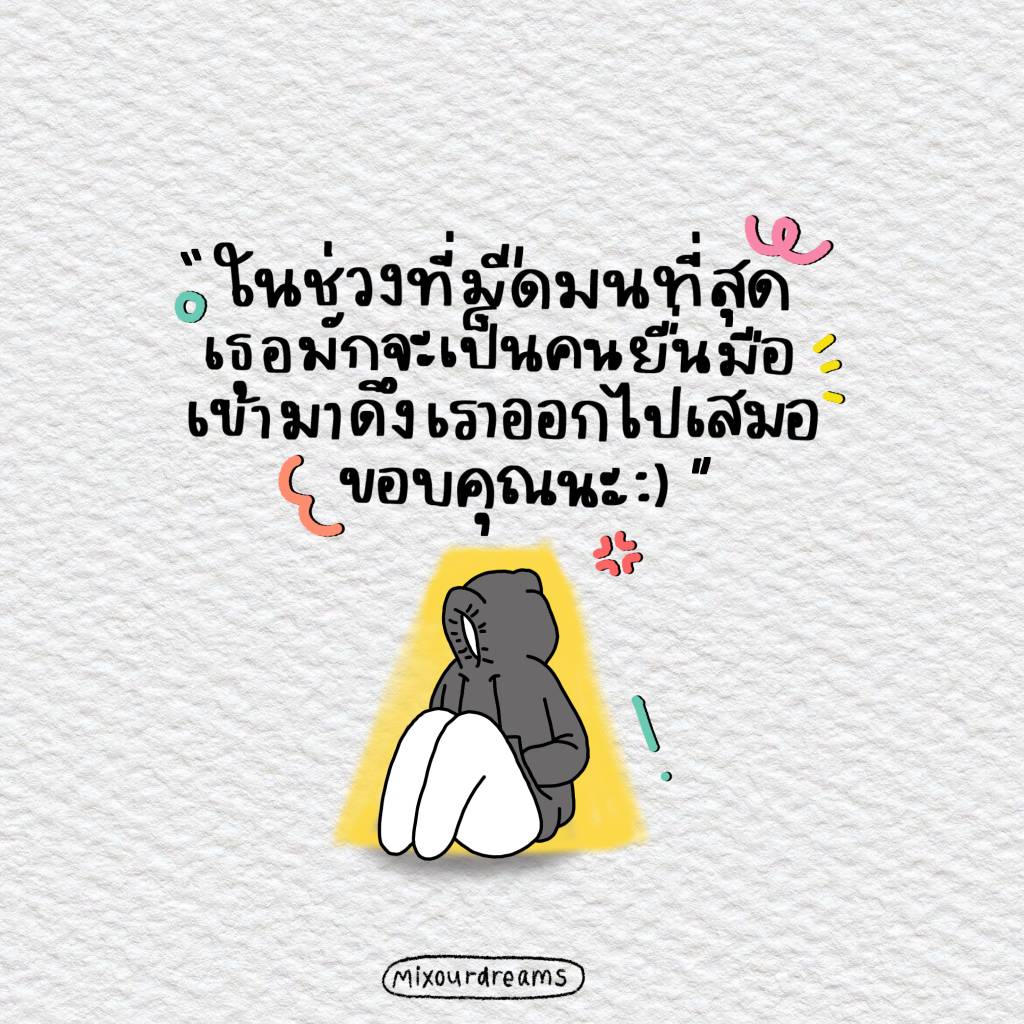 "ในช่วงที่มืดมนที่สุด
เธอมักจะเป็นคนยื่นมือ
เข้ามาดึงเราออกไปเสมอ
ขอบคุณนะ:)"
mixourdreams